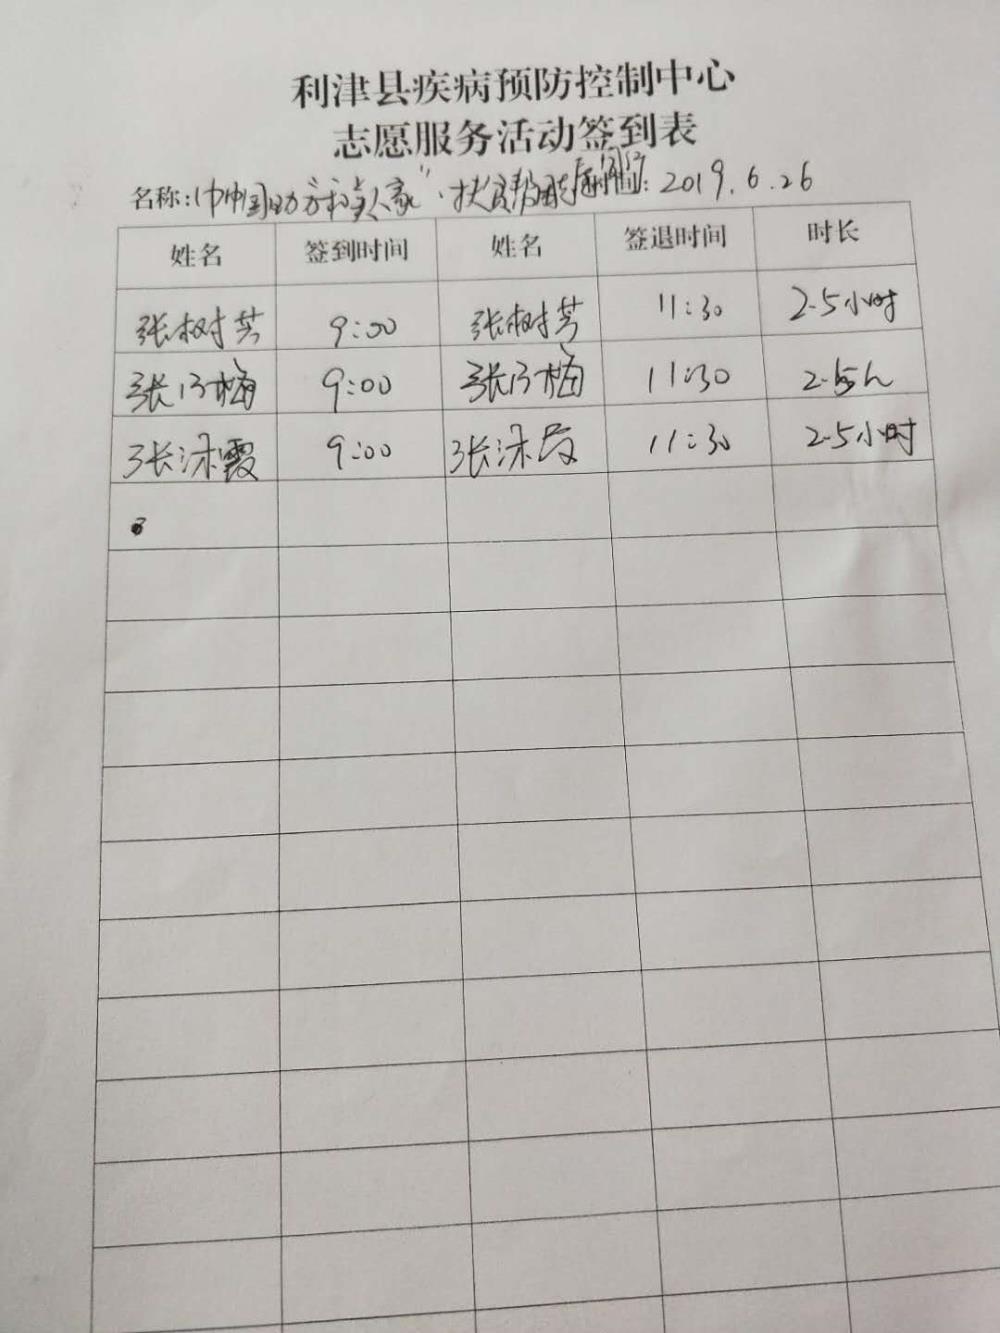 利津县疾病预防控制中心
志愿服务活动签到表
名称:"巾帼助力 美家"·扶贫帮 时间:2019.6.26
姓名 签到时间 姓名 签退时间 时长
张树芳 9:00 张树芳 11:30 2.5小时
张 梅 9:00 张 梅 11:30 2.5h
张沭霞 9:00 张沭霞 11:30 2.5小时